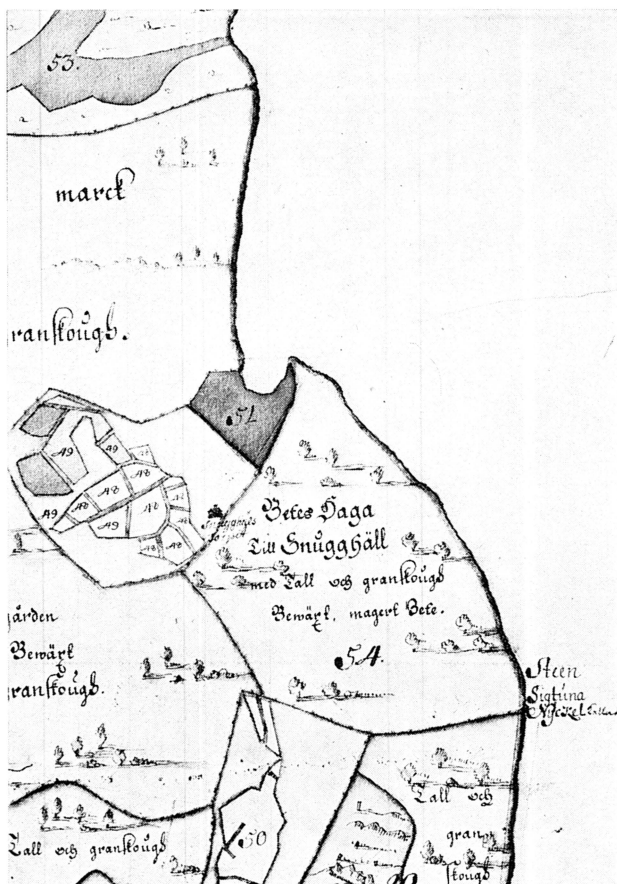 53.
marck
granskough.
51
49
49
48
48
49
48
49
48
48
48
Betes Haga
Till Snugghäll
med Tall och granskough
Bewäxt, magert Bete.
54.
gården
Bewäxt
granskough.
Steen
Sigtuna
Nyckel
Tall och
gran
skough
50
Tall och granskough